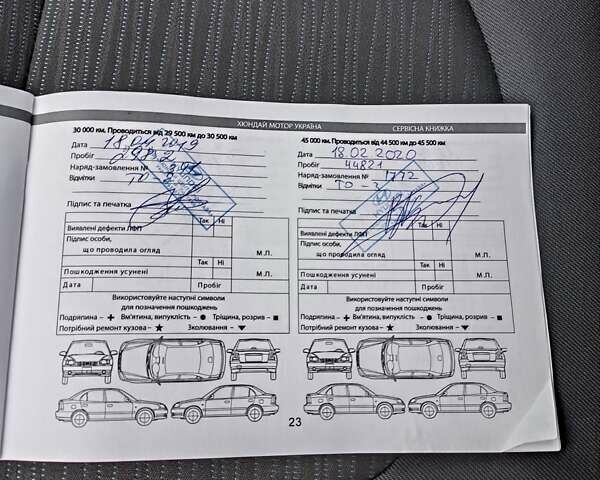 ХЮНДАЙ МОТОР УКРАЇНА
СЕРВІСНА КНИЖКА
30 000 км. Проводиться від 29 500 км до 30 500 км
Дата 2019
Пробіг
Наряд-замовлення №
Відмітки
Підпис та печатка
Так Ні
Виявлені дефекти ЛФП
Підпис особи,
що проводила огляд
М.П.
Так Ні
Пошкодження усунені
М.П.
Дата Пробіг
Використовуйте наступні символи
для позначення пошкоджень
Подряпина – + Вм'ятина, випуклість – ● Тріщина, розрив – ■
Потрібний ремонт кузова – ★ Зколювання – ▼
45 000 км. Проводиться від 44 500 км до 45 500 км
Дата 18.02 2020
Пробіг 44821
Наряд-замовлення № 1772
Відмітки ТО - 3
Підпис та печатка
Так Ні
Виявлені дефекти ЛФП
Підпис особи,
що проводила огляд
М.П.
Так Ні
Пошкодження усунені
М.П.
Дата Пробіг
Використовуйте наступні символи
для позначення пошкоджень
Подряпина – + Вм'ятина, випуклість – ● Тріщина, розрив – ■
Потрібний ремонт кузова – ★ Зколювання – ▼
23